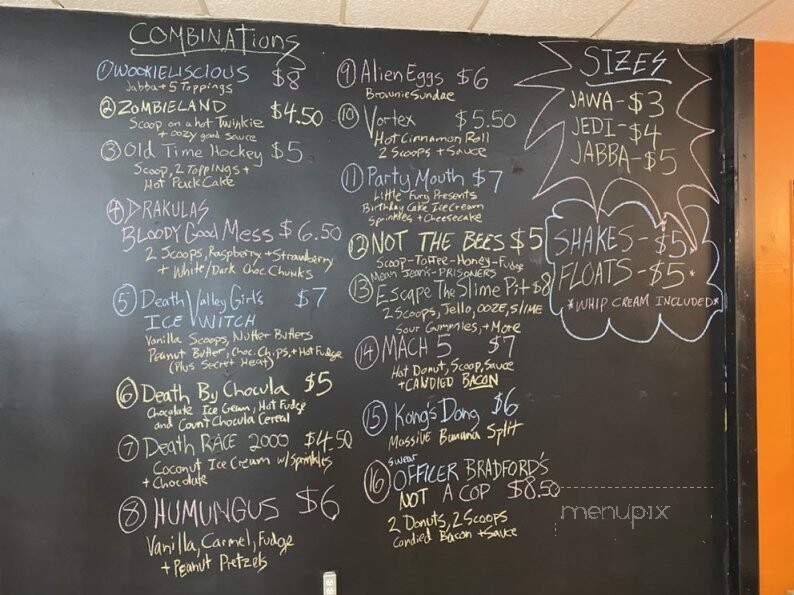 COMBINATIONS
① WOOKIELISCIOUS $8
Jabba + 5 Toppings
② ZOMBIELAND $4.50
Scoop on a hot Twinkie
+ oozy good sauce
③ Old Time Hockey $5
Scoop, 2 Toppings +
Hot Puck Cake
④ DRAKULAS
BLOODY Good Mess $6.50
2 Scoops, Raspberry + Strawberry
+ White/Dark Choc Chunks
⑤ Death Valley Girl's $7
ICE WITCH
Vanilla Scoops, Nutter Butters
Peanut Butter, Choc. Chips, + Hot Fudge
(Plus Secret Heat)
⑥ Death By Chocula $5
Chocolate Ice Cream, Hot Fudge
and Count Chocula Cereal
⑦ Death RACE 2000 $4.50
Coconut Ice Cream w/ Sprinkles
+ Chocolate
⑧ HUMUNGUS $6
Vanilla, Carmel, Fudge
+ Peanut Pretzels
⑨ Alien Eggs $6
Brownie Sundae
⑩ Vortex $5.50
Hot Cinnamon Roll
2 Scoops + Sauce
⑪ Party Mouth $7
Little Fury Presents
Birthday Cake Ice Cream
Sprinkles + Cheesecake
⑫ NOT THE BEES $5
Scoop-Toffee-Honey-Fudge
Mean Jeans-PRISONERS
⑬ Escape The Slime Pit $8
2 Scoops, Jello, OOZE, SLIME
Sour Gummies, + More
⑭ MACH 5 $7
Hot Donut, Scoop, Sauce
+ CANDIED BACON
⑮ Kong's Dong $6
Massive Banana Split
swear
⑯ OFFICER BRADFORD'S
NOT A COP $8.50
2 Donuts, 2 Scoops
Candied Bacon + Sauce
SIZES
JAWA-$3
JEDI-$4
JABBA-$5
SHAKES-$5*
FLOATS-$5*
*WHIP CREAM INCLUDED*
menupix